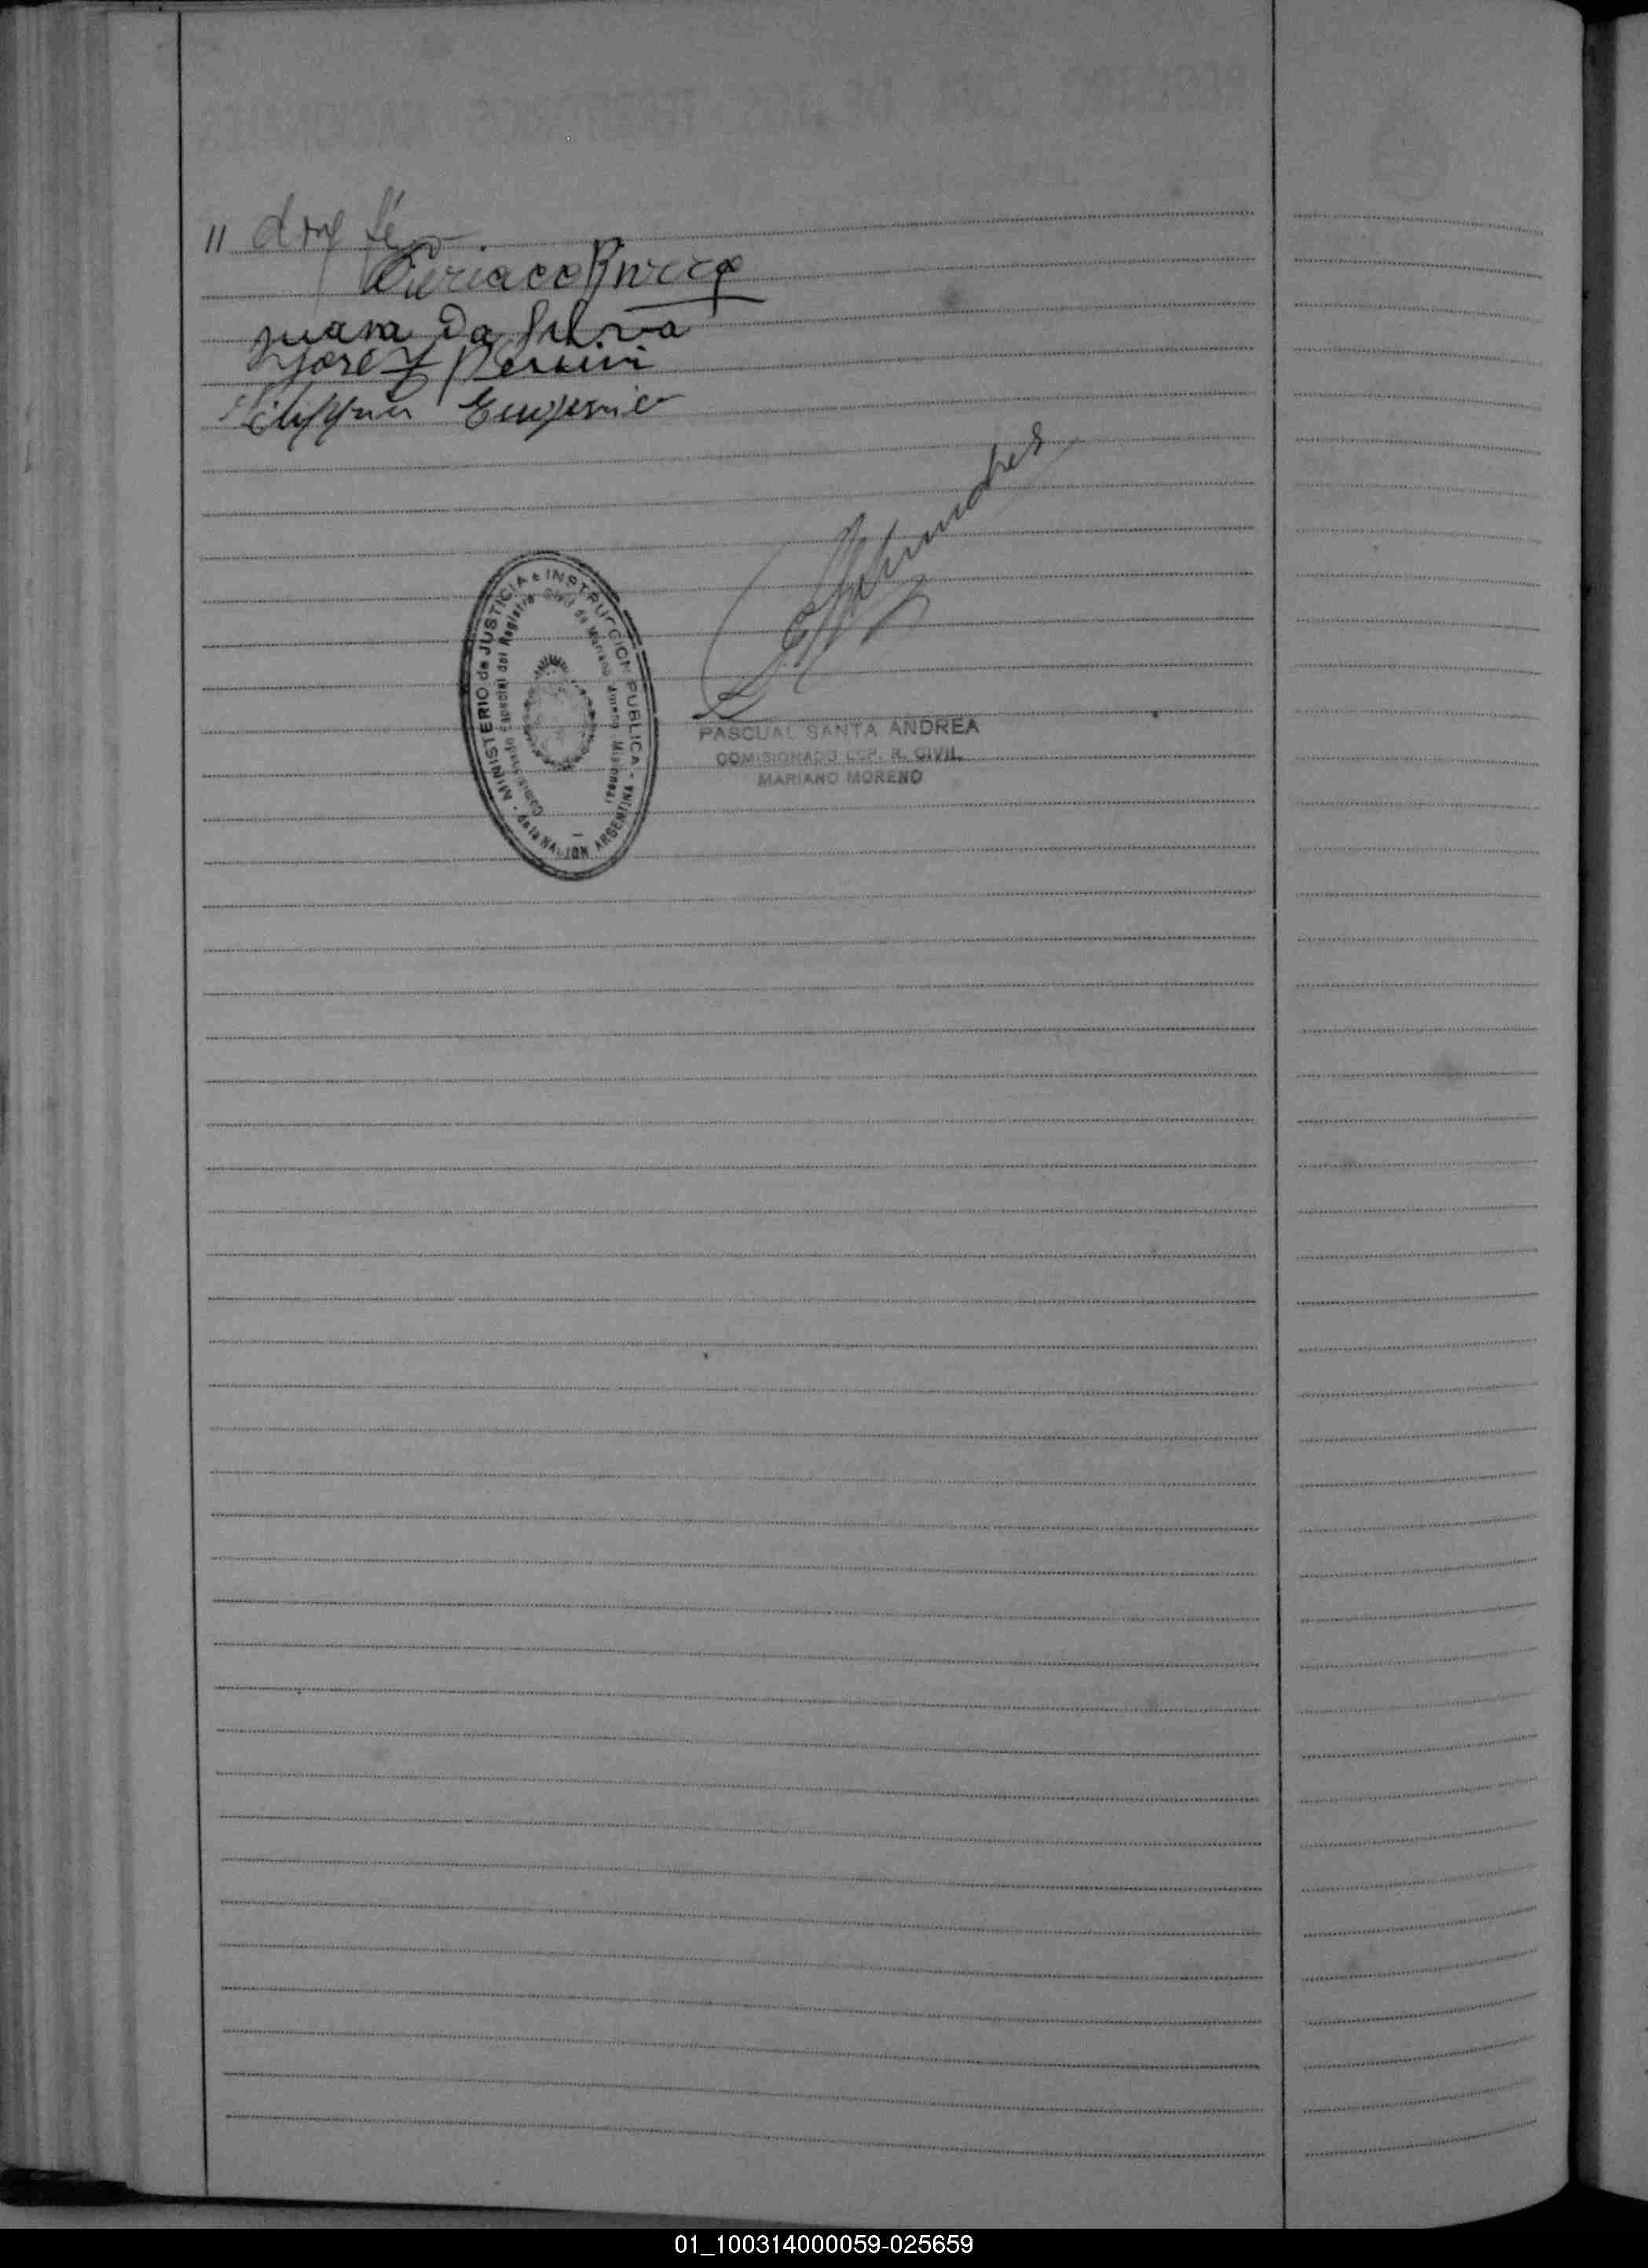 " doy fé.
Ciriaco
Juana Da Silva
José
Eugenio
MINISTERIO de JUSTICIA e INSTRUCCION PUBLICA - de la NACION ARGENTINA
Comisionado Especial del Registro Civil de Mariano Moreno Misiones
PASCUAL SANTA ANDREA
COMISIONADO ESP. R. CIVIL
MARIANO MORENO
01_100314000059-025659